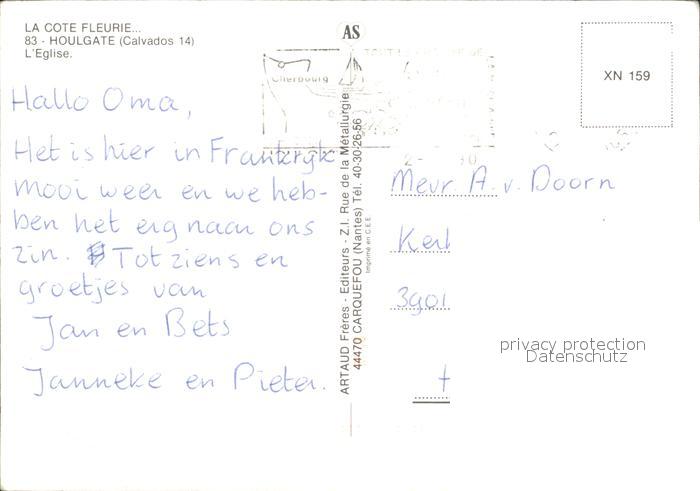 LA COTE FLEURIE...
83 - HOULGATE (Calvados 14)
L'Eglise.
Hallo Oma,
Het is hier in Frankrijk
mooi weer en we heb-
ben het erg naar ons
zin. Tot ziens en
groetjes van
Jan en Bets
Janneke en Pieter.
AS
ARTAUD Frères - Editeurs - Z.I. Rue de la Métallurgie
44470 CARQUEFOU (Nantes) Tél. 40-30-26-56
Imprimé en C.E.E.
Cherbourg
XN 159
Mevr. A. v. Doorn
Kerl
3901
privacy protection
Datenschutz